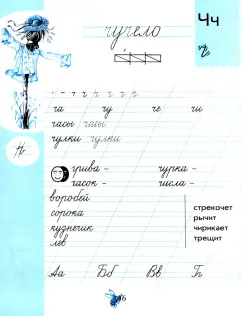 чучело
Чч
ча чу че чи
часы часы
чулки чулки
грива – чурка –
часок – числа –
воробей
сорока
кузнечик
лев
стрекочет
рычит
чирикает
трещит
Аа Бб Вв Г